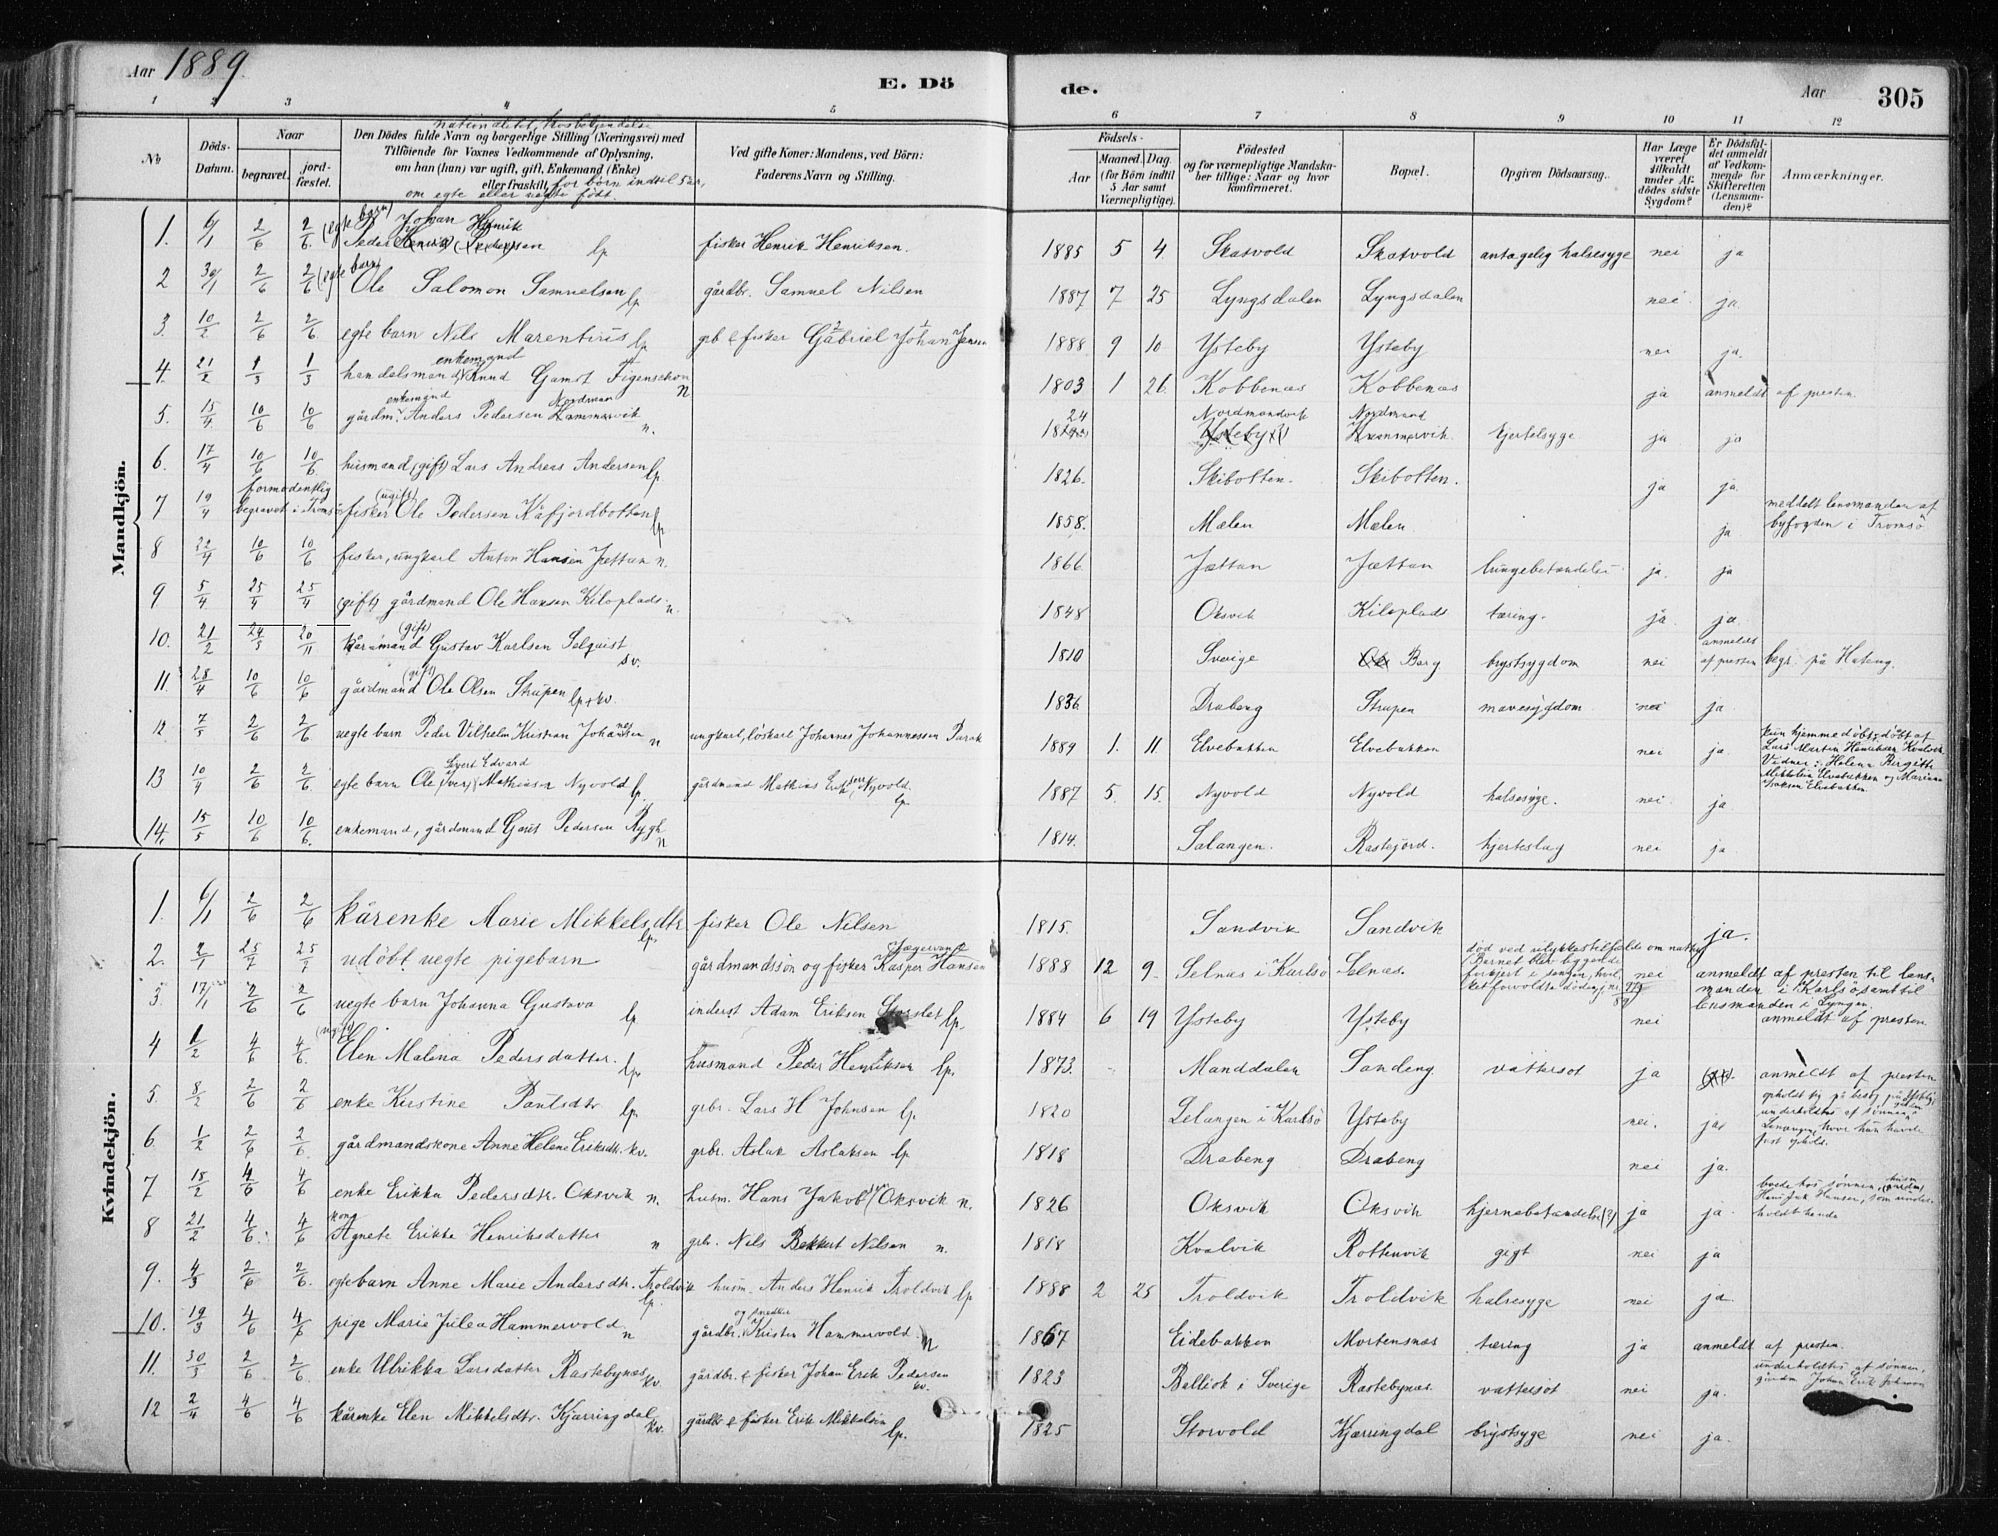 Aar 1889. E. Dö de. Aar 305
1 2 3 4 5 6 7 8 9 10 11 12
No
Döds-Datum.
Naar
begravet.
jord-fæstet.
nationalitet, trosbekjendelse
Den Dödes fulde Navn og borgerlige Stilling (Næringsvei) med
Tilföiende for Voxnes Vedkommende af Oplysning,
om han (hun) var ugift, gift, Enkemand (Enke)
eller fraskilt, for børn indtil 5 år,
om egte eller uegte født.
Ved gifte Koner: Mandens, ved Börn:
Faderens Navn og Stilling.
Födsels-
Aar
Maaned. Dag.
(for Börn indtil
5 Aar samt
Værnepligtige).
Födested
og for værnepligtige Mandska-
ber tillige: Naar og hvor
konfirmeret.
Bopæl.
Opgiven Dödsaarsag.
Har Læge
været
tilkaldt
under Af-
dödes sidste
Sygdom?
Er Dödsfal-
det anmeldt
af Vedkom-
mende for
Skifteretten
(Lensman-
den)?
Anmærkninger.
Mandkjön.
1. 6/1 2/6 2/6 (egte barn) Johan Henrik Peder lp fisker Henrik Henriksen. 1885 5 4. Skatvold Skatvold antagelig halsesyge nei ja
2 30/1 2/6 2/6 (egte barn) Ole Salomon Samuelsen lp gårdbr. Samuel Nilsen 1887 7 25 Lyngsdalen Lyngsdalen nei ja.
3. 10/2 2/6 2/6 egte barn Nils Marentius lp grb & fisker Gabriel Johan Jensen 1888 9 10 Ysteby Ysteby nei ja.
4. 21/2 1/3 1/3 handelsmand, enkemand Knud Gamst Figenschou n 1803 1 26. Kobbenæs Kobbenæs ja anmeldt af presten.
5. 15/4 10/6 10/6 gårdm. enkemand Anders Pedersen Nordman Hammervik n. 1824 Nordmandvik Ysteby Nordmand Hammervik. kjertelsyge ja ja
6. 17/4 10/6 10/6 husmand (gift) Lars Andreas Andersen lp 1826. Skibotten. Skibotten. ja ja.
7 19/4 formodentlig begravet i Tromsö (ugift) fisker Ole Pedersen Kåfjordbotten lp 1858. Mælen Mælen. ja. meddelt lensmanden af byfogden i Tromsö.
8 22/4 10/6 10/6 fisker, ungkarl Anton Hansen Jættan n. 1866. Jættan Jættan lungebetændelse ja. ja
9 5/4 25/4 25/4 (gift) gårdmand Ole Hansen Kiloplads. n. 1848 Oksvik Kiloplads tæring. ja. ja.
10. 21/2 24/5 20/11 (gift) kårmand Gustav Karlsen Selqvist sv. 1810 Sverige Berg brystsygdom nei anmeldt af presten begr. på Hateng.
11. 28/4 10/6 10/6 (gift) gårdmand Ole Olsen Strupen lp+kv. 1836. Drabeng Strupen mavesygdom nei ja.
12 7/5 2/6 2/6 uegte barn Peder Vilhelm Kristian Johannesen n ungkarl, löskarl Johannes Johannessen 1889 1. 11. Elvebakken Elvebakken nei ja. kun hjemmedöbt; döbt af Lars Martin Henriksen Kvalvik. Vidner: Helena Birgitte Elvebakken og Mariane Isaksen Elvebakken.
13 10/4 2/6 2/6. egte barn Ole Sivert Edvard (Iver) Mathiasen Nyvold lp gårdmand Mathias Eriksen Nyvold. lp 1887 5. 15. Nyvold Nyvold halsesyge. nei. ja.
14. 15/5 10/6 10/6. enkemand, gårdmand Pedersen Rygh. n 1814. Salangen. Rastefjord. hjerteslag nei ja.
Kvindekjön.
1. 6/1 2/6 2/6 kårenke Marie Mikkelsdtr lp. fisker Ole Nilsen 1815. Sandvik Sandvik ja.
2. 2/1 25/1 25/1 udöbt uegte pigebarn gårdmandssön og fisker Kasper Hansen Jægervand 1888 12 9. Selnæs i Karlsö Selnæs. död ved ulykkestilfælde om natten (Barnet blev liggende forkjert i sengen, hvilket forvoldte döden) nei anmeldt af presten til lensmanden i Karlsö samt til lensmanden i Lyngen.
3. 17/1 2/6 2/6 uegte barn Johanna Gustava lp inderst Adam Eriksen Storslet lp. 1884 6 19 Ysteby Ysteby nei anmeldt af presten
4 1/2 4/6 4/6 (ugift) Elen Malena Pedersdatter. lp. husmand Peder Henriksen lp. 1873. Manddalen Sandeng vattersot ja anmeldt af presten
5. 8/2 2/6 2/6 enke Kirstine Paulsdtr lp. grbr. Lars H Johnsen lp 1820 Lelangen i Karlsö Ysteby nei. ja. opholdt sig på besög på Ysteby; underholdtes af sönnen hvor hun havde fast ophold.
6 1/2 2/6 2/6. gårdmandskone Anne Helene Eriksdtr. kv. grbr. Aslak Aslaksen lp 1818 Drabeng Drabeng nei ja.
7 15/2 4/6 4/6 enke Erikka Pedersdtr. Oksvik n. husm. Hans Jakobsen Oksvik n. 1826 Oksvik Oksvik hjernebetændelse(?) ja ja. boede hos sönnen, Hans Hansen, som underholdt hende
8 21/2 4/6. 4/6 kone Agnete Erikke Henriksdatter n grbr. Nils Bekkert Nilsen n. 1818 Kvalvik Rottenvik gigt nei ja
9. 4/3 2/6 2/6. egte barn Anne Marie Andersdtr. Troldvik lp. husm. Anders Henrik Troldvik lp 1888 2 25 Troldvik Troldvik halsesyge nei ja.
10. 19/3 4/6 4/6 pige Marie Julea Hammervold n gårdbr. og snedker Kristen Hammervold. n 1867 Eidebakken Mortensnæs tæring ja anmeldt af presten.
11. 30/3 2/6 2/6. enke Ulrikka Larsdatter Rastebynæs kv. gårdbr. & fisker Johan Erik Pedersen kv. 1823 i Sverige Rastebynæs. vattersot nei ja. underholdtes af sönnen, gårdm Johan Erik Johnson
12 2/4 4/6 4/6 kårenke Elen Mikkelsdtr. Kjærringdal kv. gårdbr & fisker Erik Mikkelsen lp. 1825 Storvold Kjærringdal brystsyge nei ja.